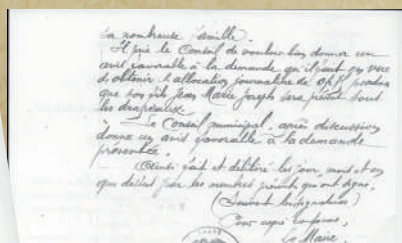 sa nombreuse famille.
Il prie le Conseil de vouloir bien donner un
avis favorable à la demande qu'il fait en vue
d'obtenir l'allocation journalière de pendant
que son fils Jean Marie Joseph sera présent sous
les drapeaux.
Le Conseil municipal, après discussion
donne un avis favorable à la demande
présentée.
Ainsi fait et délibéré les jour, mois et an
que dessus par les membres présents qui ont signé.
(Suivent les signatures)
Pour copie conforme,
Le Maire.